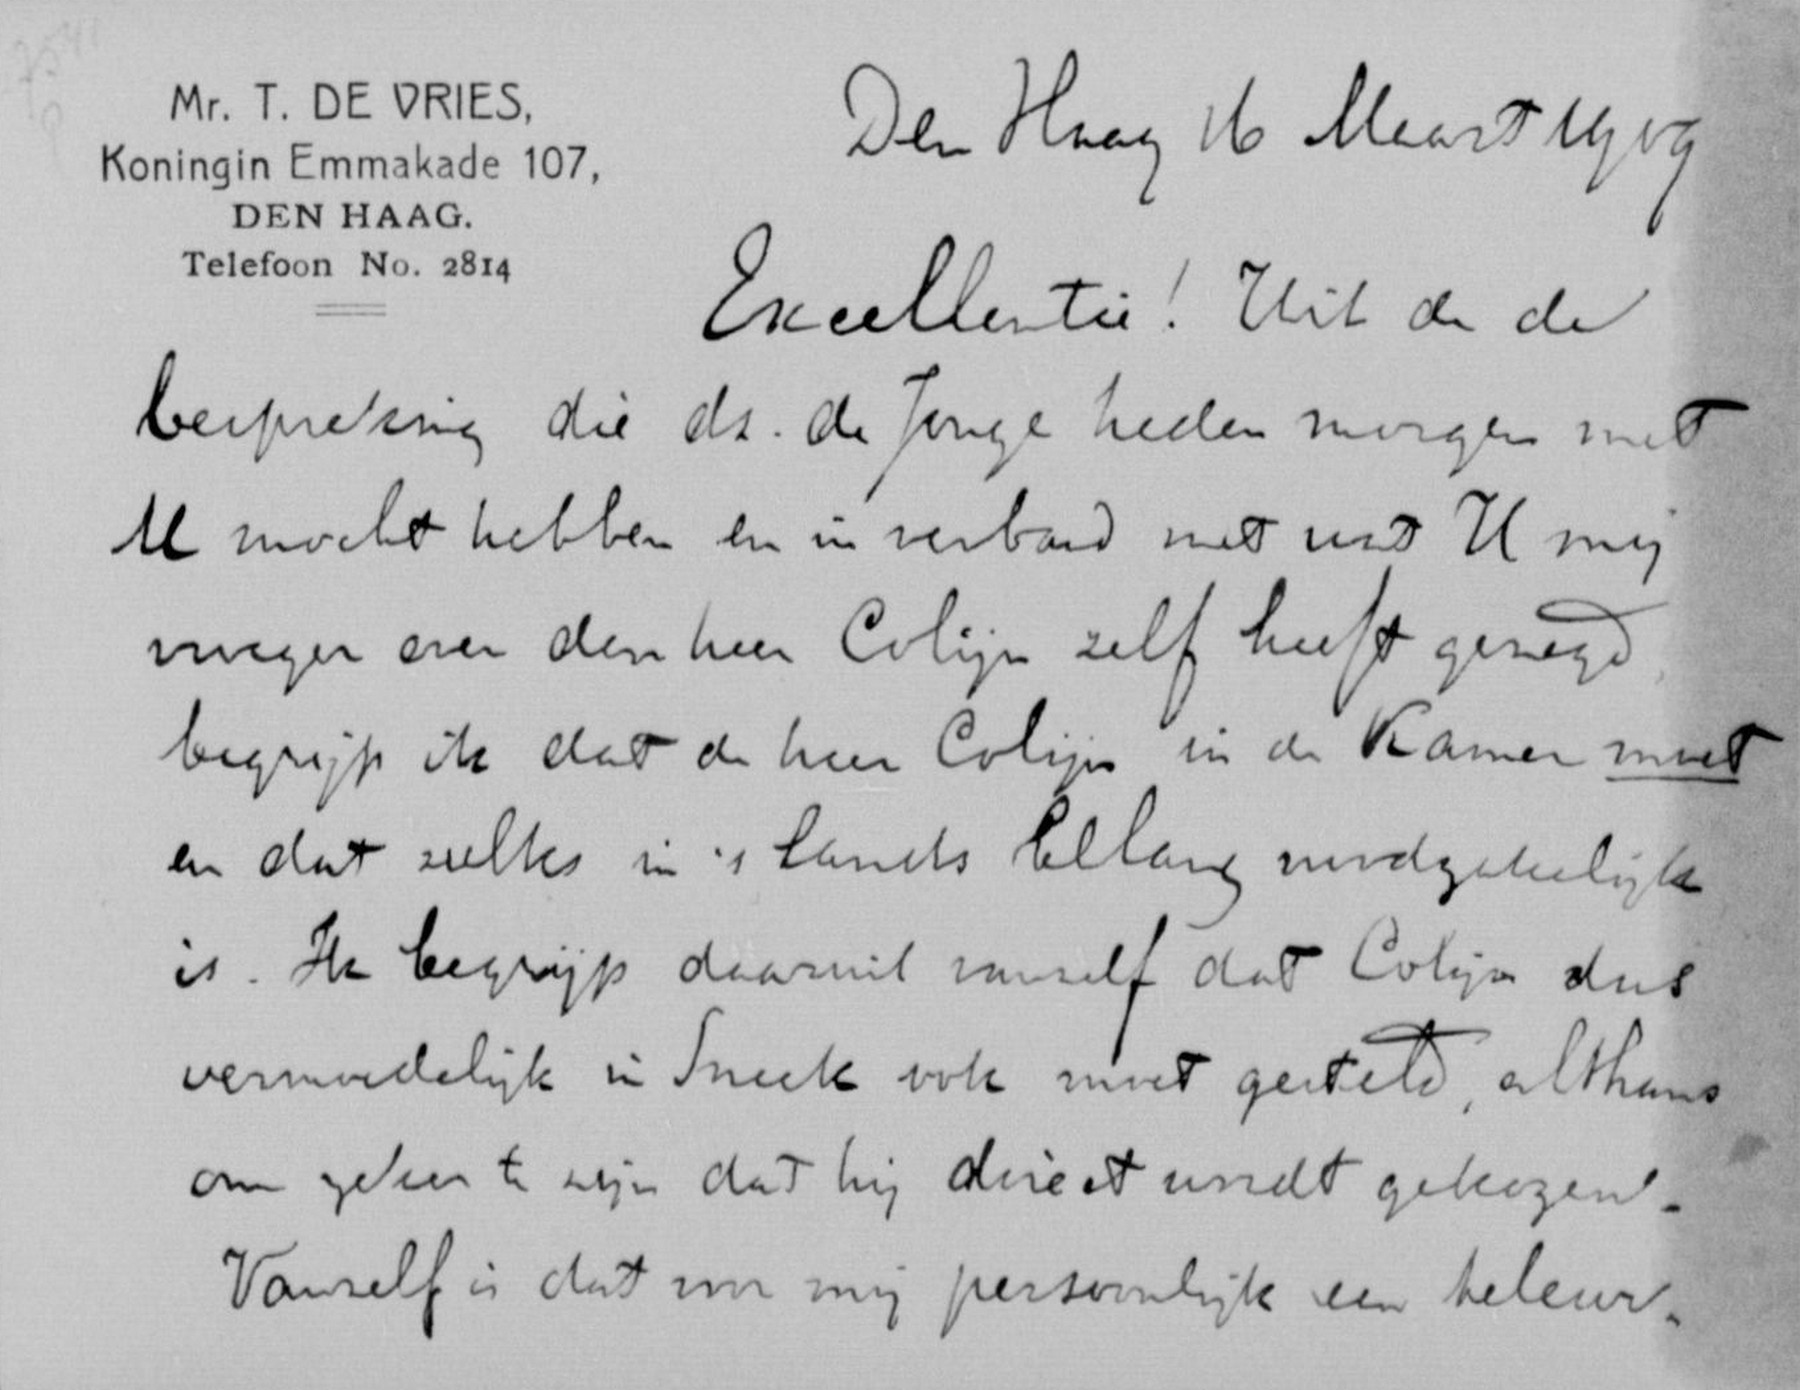 Mr. T. DE VRIES,
Koningin Emmakade 107,
DEN HAAG.
Telefoon No. 2814
Den Haag 16 Maart 1909
Excellentie! Uit de de
bespreking die ds. de Jonge heden morgen met
U mocht hebben en in verband met wat U mij
vroeger over den heer Colijn zelf heeft gezegd,
begrijp ik dat de heer Colijn in de Kamer moet
en dat zulks in 's Lands belang noodzakelijk
is. Ik begrijp daaruit vanzelf dat Colijn dus
vermoedelijk in Sneek ook moet gesteld, althans
om zeker te zijn dat hij direct wordt gekozen.
Vanzelf is dat voor mij persoonlijk een teleur-